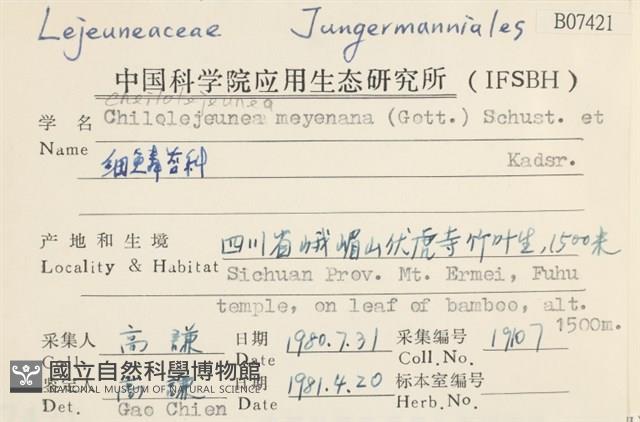 Lejeuneaceae Jungermanniales B07421
中国科学院应用生态研究所 (IFSBH)
Cheilolejeunea
学名 Chilolejeunea meyenana (Gott.) Schust. et
Name 细鳞苔科 Kadsr.
产地和生境 四川省峨嵋山伏虎寺竹叶生,1500米
Locality & Habitat Sichuan Prov. Mt. Ermei, Fuhu
temple, on leaf of bamboo, alt.
1500m.
采集人 高謙 日期 1980.7.31 采集编号 19107
Coll. Date Coll.No.
國立自然科學博物館
NATIONAL MUSEUM OF NATURAL SCIENCE
高謙 日期 1981.4.20 标本室编号
Det. Gao Chien Date Herb.No.